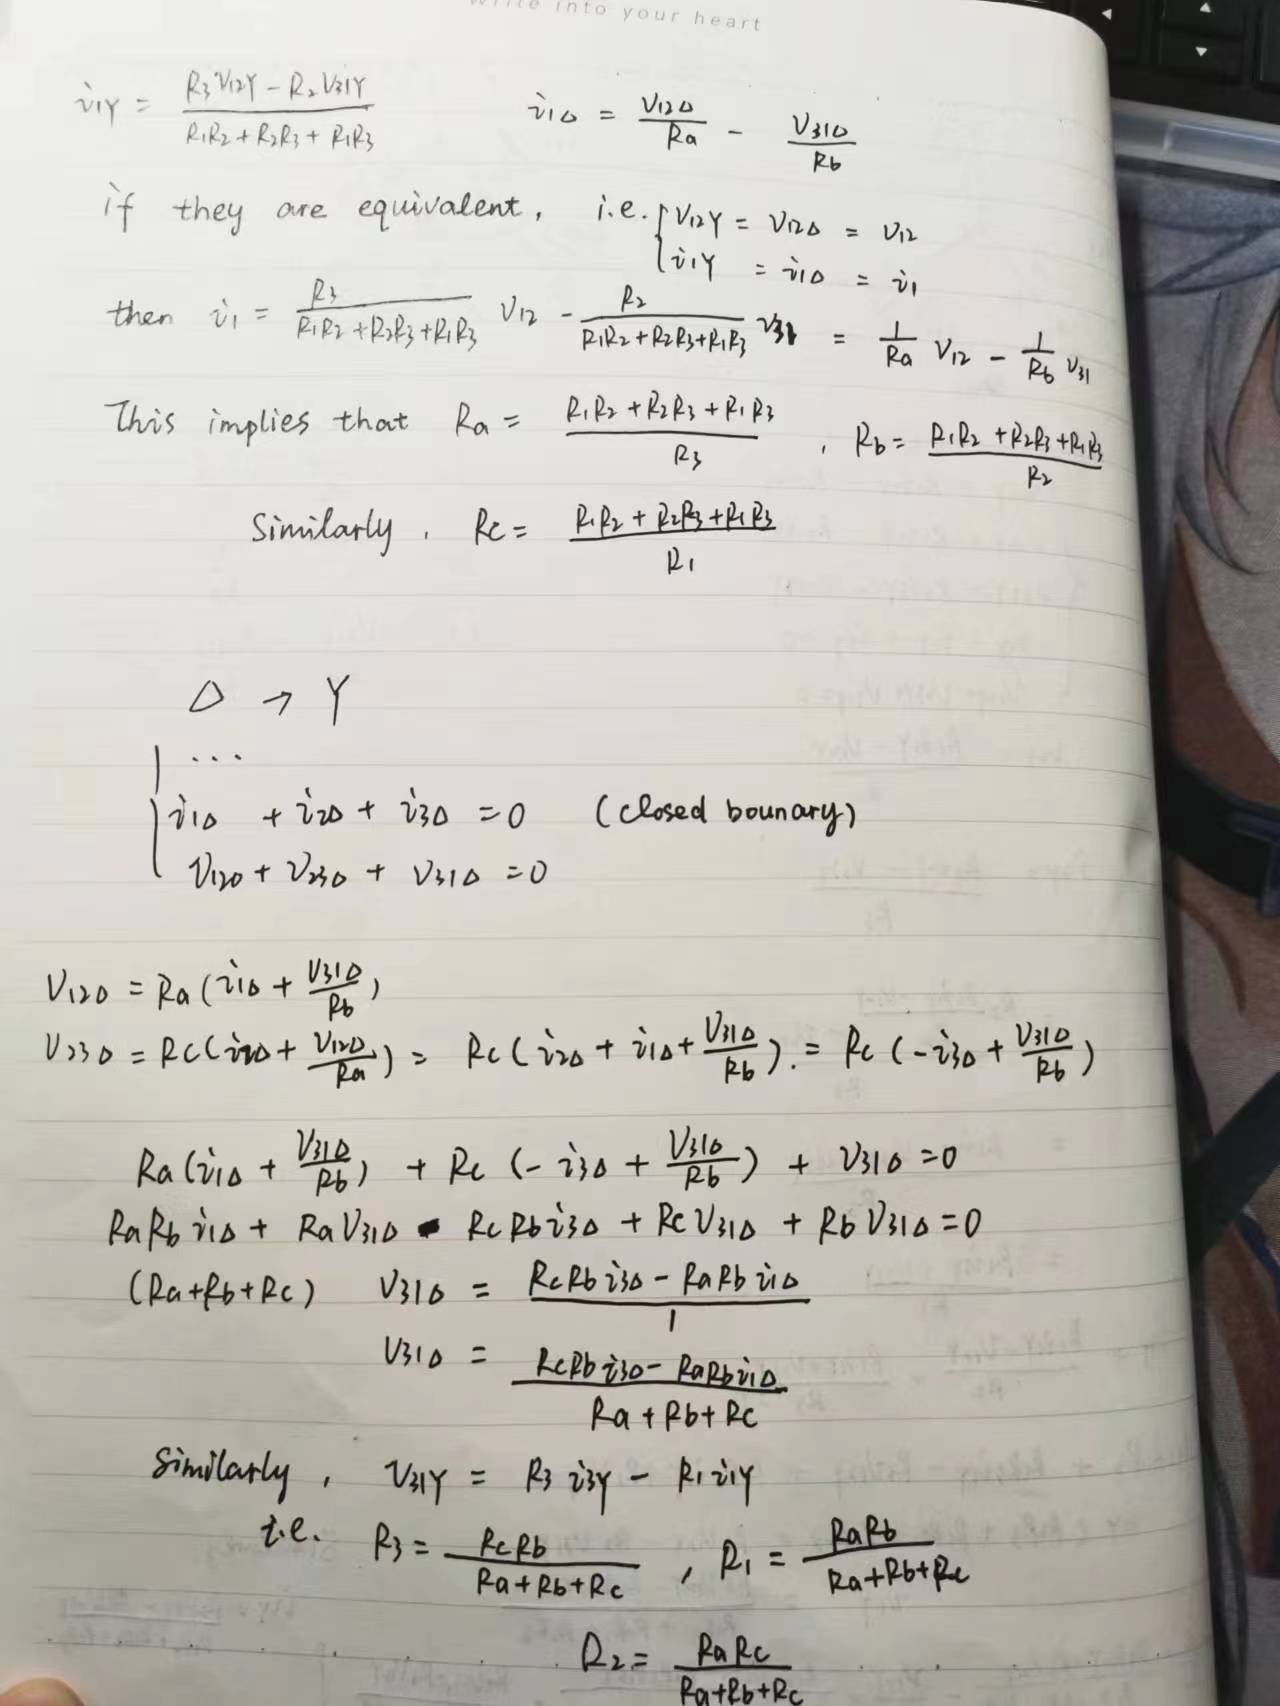 write into your heart
i1Y = (R3 V12Y - R2 V31Y) / (R1R2 + R2R3 + R1R3)    i1Δ = V12Δ / Ra - V31Δ / Rb
if they are equivalent, i.e. { V12Y = V12Δ = V12
i1Y = i1Δ = i1
then i1 = R3 / (R1R2 + R2R3 + R1R3) V12 - R2 / (R1R2 + R2R3 + R1R3) V31 = 1/Ra V12 - 1/Rb V31
This implies that Ra = (R1R2 + R2R3 + R1R3) / R3 , Rb = (R1R2 + R2R3 + R1R3) / R2
Similarly, Rc = (R1R2 + R2R3 + R1R3) / R1
Δ → Y
{ ...
i1Δ + i2Δ + i3Δ = 0 (closed bounary)
V12Δ + V23Δ + V31Δ = 0
V12Δ = Ra (i1Δ + V31Δ / Rb)
V23Δ = Rc (i2Δ + V12Δ / Ra) = Rc (i2Δ + i1Δ + V31Δ / Rb). = Rc (-i3Δ + V31Δ / Rb)
Ra (i1Δ + V31Δ / Rb) + Rc (-i3Δ + V31Δ / Rb) + V31Δ = 0
RaRb i1Δ + Ra V31Δ - RcRb i3Δ + Rc V31Δ + Rb V31Δ = 0
(Ra+Rb+Rc) V31Δ = (RcRb i3Δ - RaRb i1Δ) / 1
V31Δ = (RcRb i3Δ - RaRb i1Δ) / (Ra + Rb + Rc)
Similarly, V31Y = R3 i3Y - R1 i1Y
i.e. R3 = RcRb / (Ra+Rb+Rc) , R1 = RaRb / (Ra+Rb+Rc)
R2 = RaRc / (Ra+Rb+Rc)